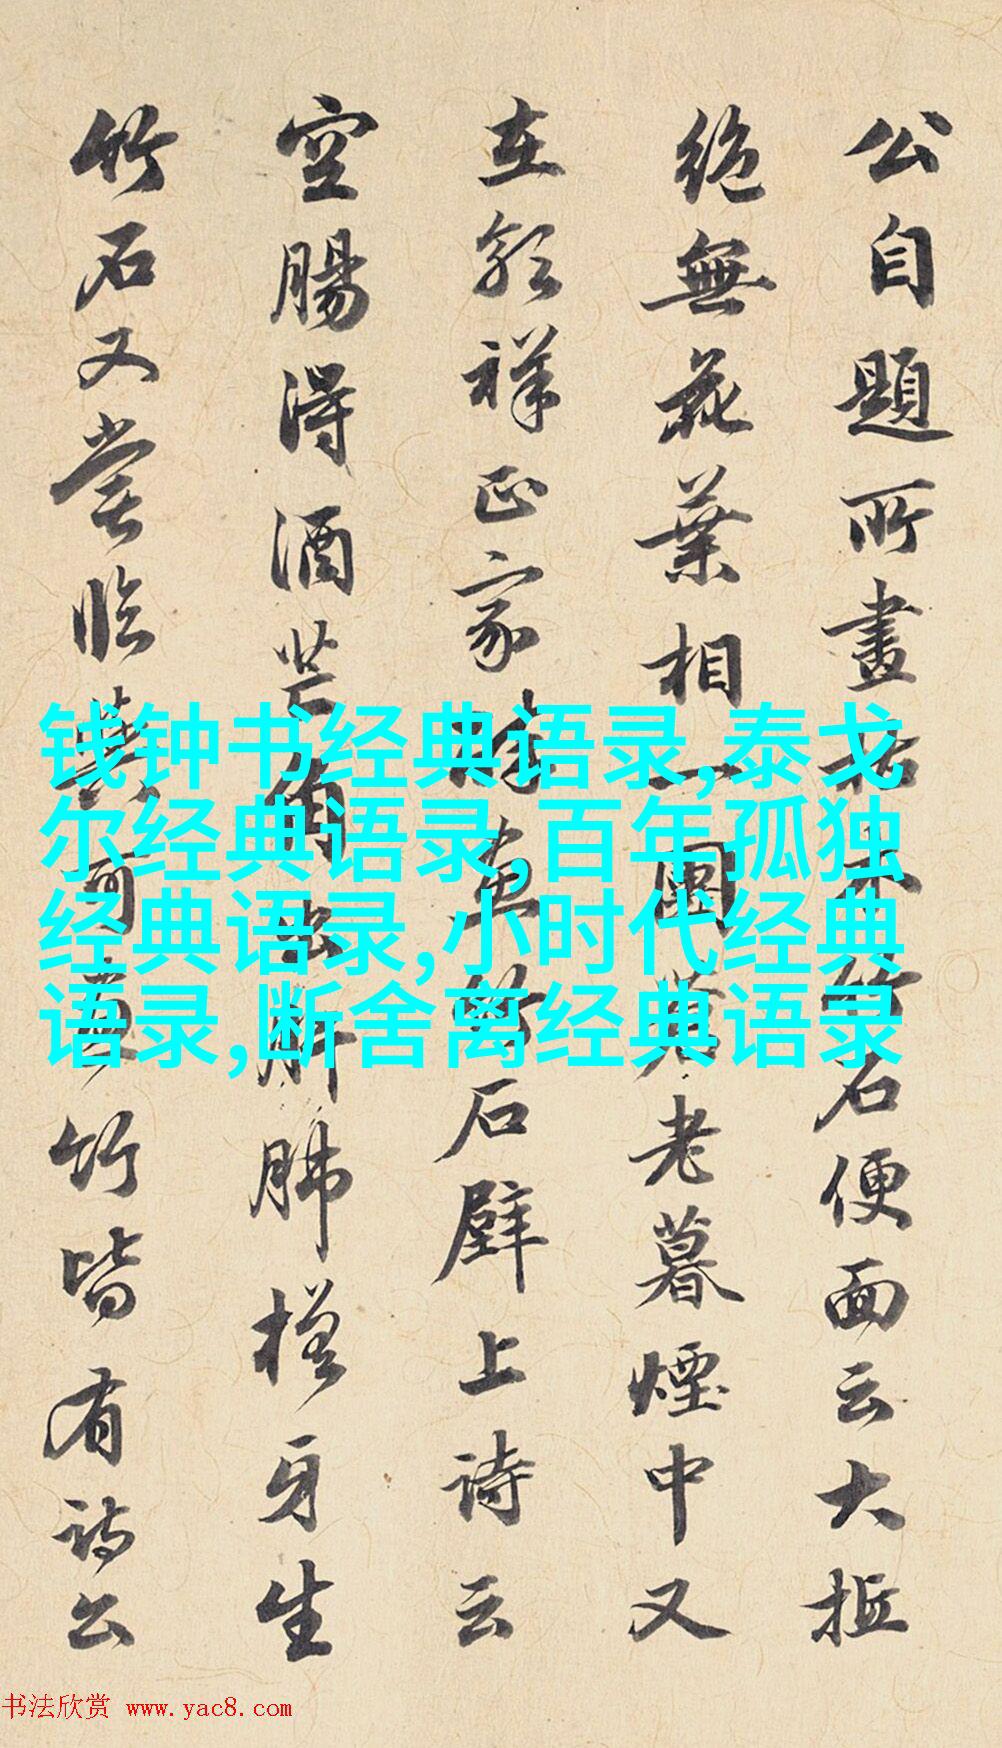 公自題所畫枯木竹石便面云大抵
絶無花葉相一團蒼老暮煙中又
在郭祥正家醉畫竹石壁上詩云
空腸得酒芒角出肝肺槎牙生
竹石又嘗臨與可畫竹皆有詩公
钱钟书经典语录,泰戈
尔经典语录,百年孤独
经典语录,小时代经典
语录,断舍离经典语录
书法欣赏 www.yac8.com